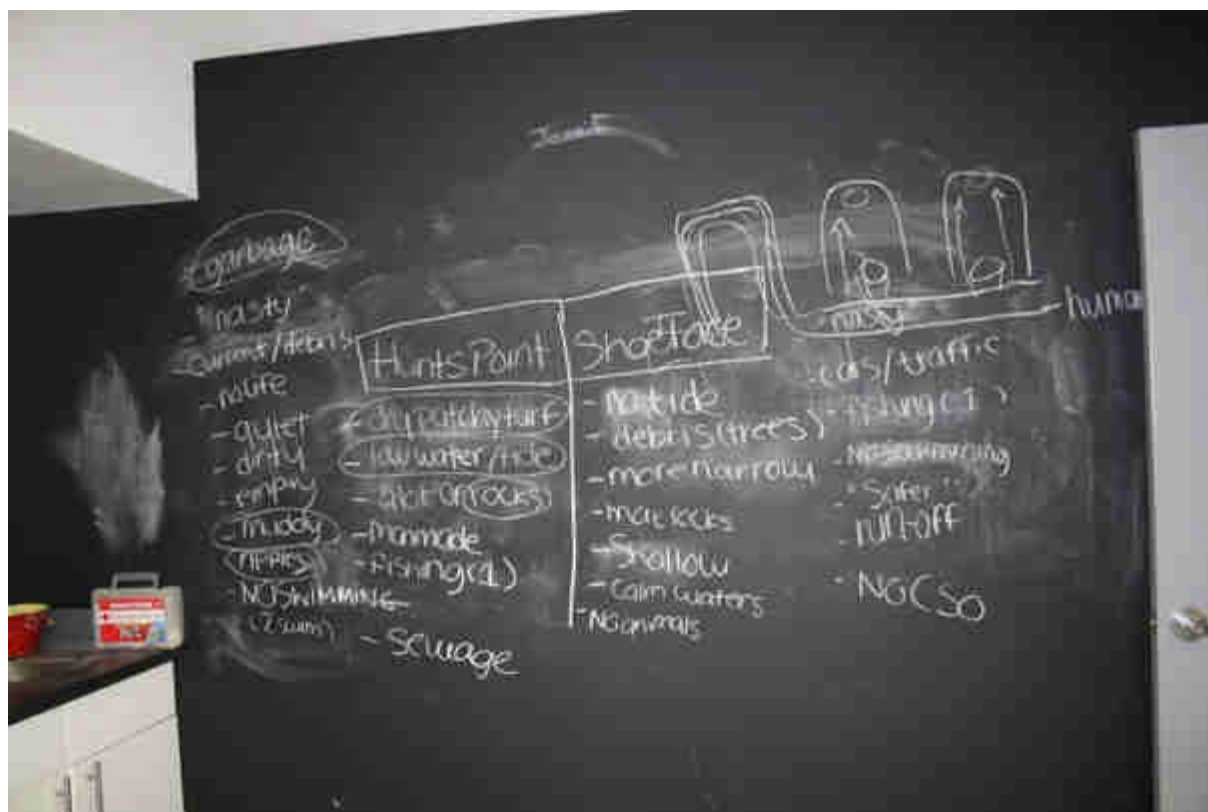 garbage
"nasty"
- current/debris
- no life
- quiet
- dirty
- empty
- muddy
- NO SWIMMING
(2 swam)
Hunts Point
- dry patchy turf
- low water/tide
- alot of rocks
- manmade
- fishing (1)
- sewage
Shoelace
- no tide
- debris (trees)
- more narrow
- Shallow
- calm waters
- No animals
human
"nasty"
- cars/traffic
- fishing (1)
- No swimming
- "Safer"
- run-off
- NO CSO